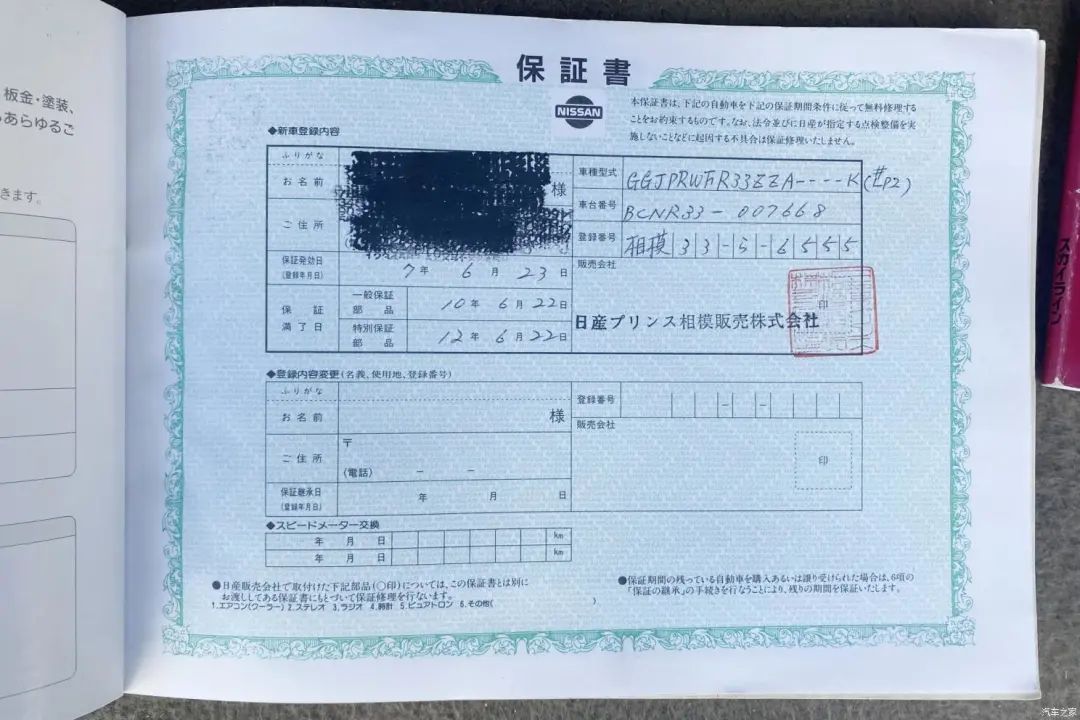 板金・塗装、
あらゆるご
きます。
保証書
NISSAN
本保証書は、下記の自動車を下記の保証期間条件に従って無料修理する
ことをお約束するものです。なお、法令並びに日産が指定する点検整備を実
施しないことなどに起因する不具合は保証修理いたしません。
◆新車登録内容
ふりがな
お名前
様
ご住所
保証発効日
(登録年月日)
7年 6月 23日
保証満了日
一般保証部品
10年 6月 22日
特別保証部品
12年 6月 22日
車種型式
GGJPRWFR33ZZA----K
車台番号
BCNR33-007668
登録番号
相模 33-5-6555
販売会社
日産プリンス相模販売株式会社
印
◆登録内容変更(名義、使用地、登録番号)
ふりがな
お名前
様
ご住所
〒
(電話) － －
保証継承日
(登録年月日)
年 月 日
登録番号
－ －
販売会社
印
◆スピードメーター交換
年 月 日 km
年 月 日 km
●日産販売会社で取付けた下記部品(○印)については、この保証書とは別に
お渡ししてある保証書にもとづいて保証修理を行ないます。
1.エアコン(クーラー) 2.ステレオ 3.ラジオ 4.時計 5.ピュアトロン 6.その他( )
●保証期間の残っている自動車を購入あるいは譲り受けられた場合は、6項の
「保証の継承」の手続きを行なうことにより、残りの期間を保証いたします。
スカイライン
汽车之家